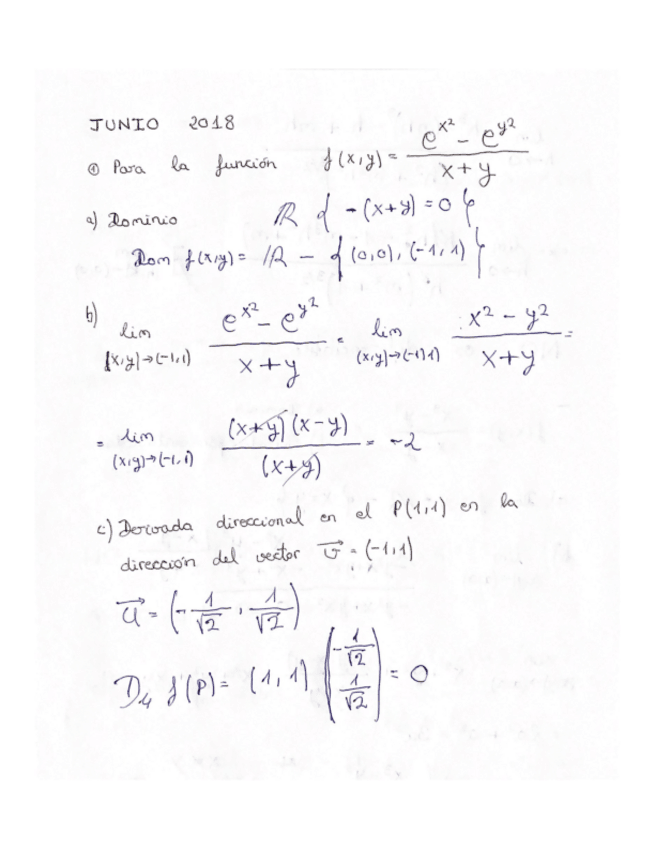 JUNIO 2018
① Para la función f(x,y) = (e^x² - e^y²)/(x+y)
a) Dominio ℝ { -(x+y) = 0 }
Dom f(x,y) = ℝ - { (0,0), (-1,1) }
b) lim (x,y)→(-1,1) (e^x² - e^y²)/(x+y) = lim (x,y)→(-1,1) (x² - y²)/(x+y) =
= lim (x,y)→(-1,1) ((x+y)(x-y))/(x+y) = -2
c) Derivada direccional en el P(1,1) en la
dirección del vector v⃗ = (-1,1)
u⃗ = (-1/√2, 1/√2)
D_u f(P) = (1,1) (-1/√2 1/√2) = 0